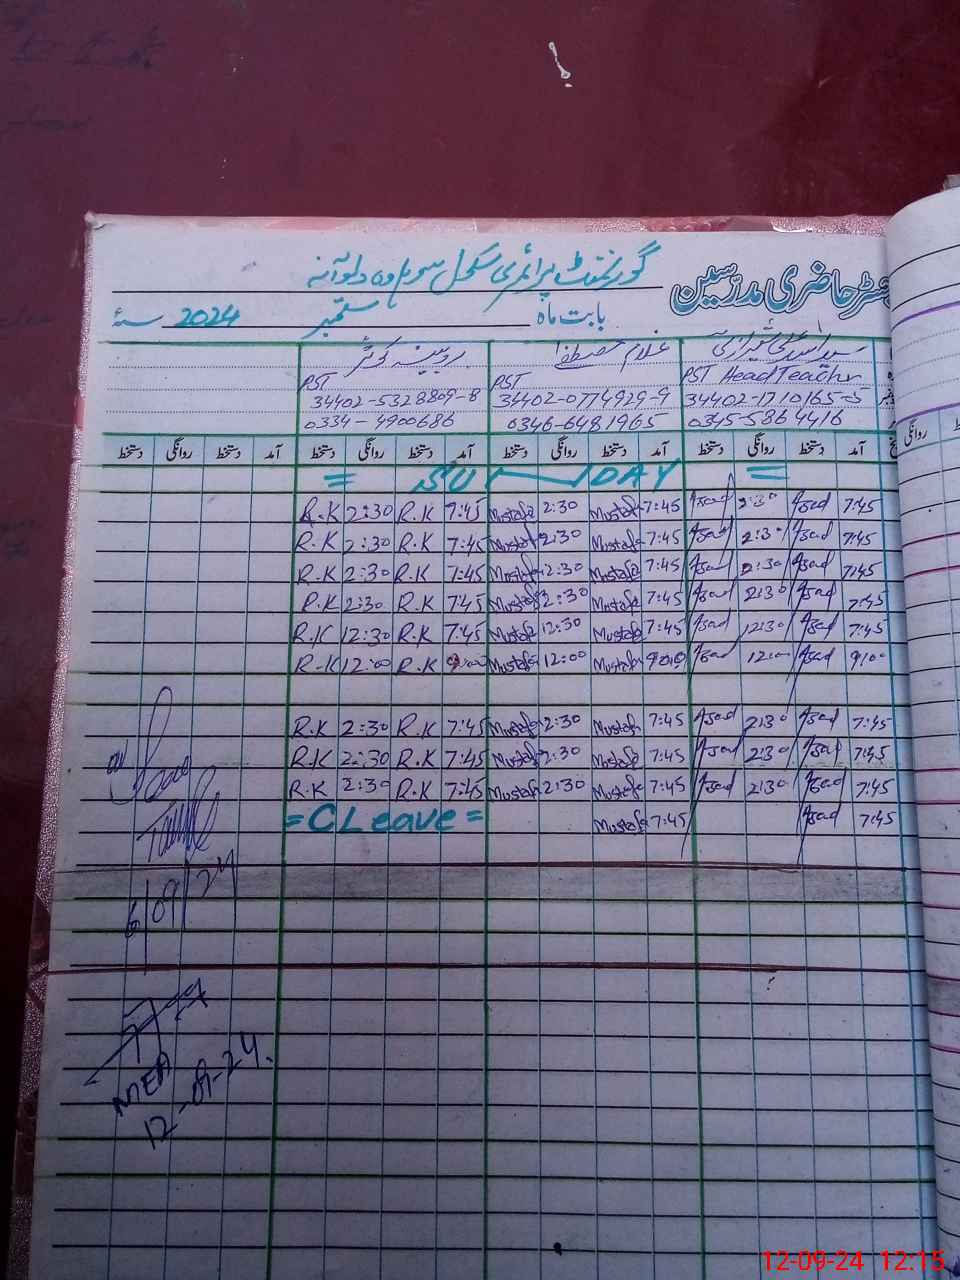 رجسٹر حاضری مدرسین گورنمنٹ پرائمری سکول
بابت ماہ ستمبر 2024 سنۂ
غلام مصطفیٰ روبینہ کوثر
PST Head Teachr PST PST
34402-1710165-5 34402-0774929-9 34402-5328809-8
0345-5864416 0346-6481965 0334-4900686
آمد دستخط روانگی دستخط آمد دستخط روانگی دستخط آمد دستخط روانگی دستخط آمد دستخط روانگی دستخط
= SUNDAY =
7:45 Asad 2:30 Asad 7:45 Mustafa 2:30 Mustafa 7:45 R.K 2:30 R.K
7:45 Asad 2:30 Asad 7:45 Mustafa 2:30 Mustafa 7:45 R.K 2:30 R.K
7:45 Asad 2:30 Asad 7:45 Mustafa 2:30 Mustafa 7:45 R.K 2:30 R.K
7:45 Asad 2:30 Asad 7:45 Mustafa 2:30 Mustafa 7:45 R.K 2:30 R.K
7:45 Asad 12:30 Asad 7:45 Mustafa 12:30 Mustafa 7:45 R.K 12:30 R.K
9:00 Asad 12:00 Asad Mustafa 12:00 Mustafa R.K 12:00 R.K
7:45 Asad 2:30 Asad 7:45 Mustafa 2:30 Mustafa 7:45 R.K 2:30 R.K
7:45 Asad 2:30 Asad 7:45 Mustafa 2:30 Mustafa 7:45 R.K 2:30 R.K
7:45 Asad 2:30 Asad 7:45 Mustafa 2:30 Mustafa 7:45 R.K 2:30 R.K
7:45 Asad 7:45 Mustafa = C Leave =
6/09/24
MEA
12-09-24.
12-09-24 12:15